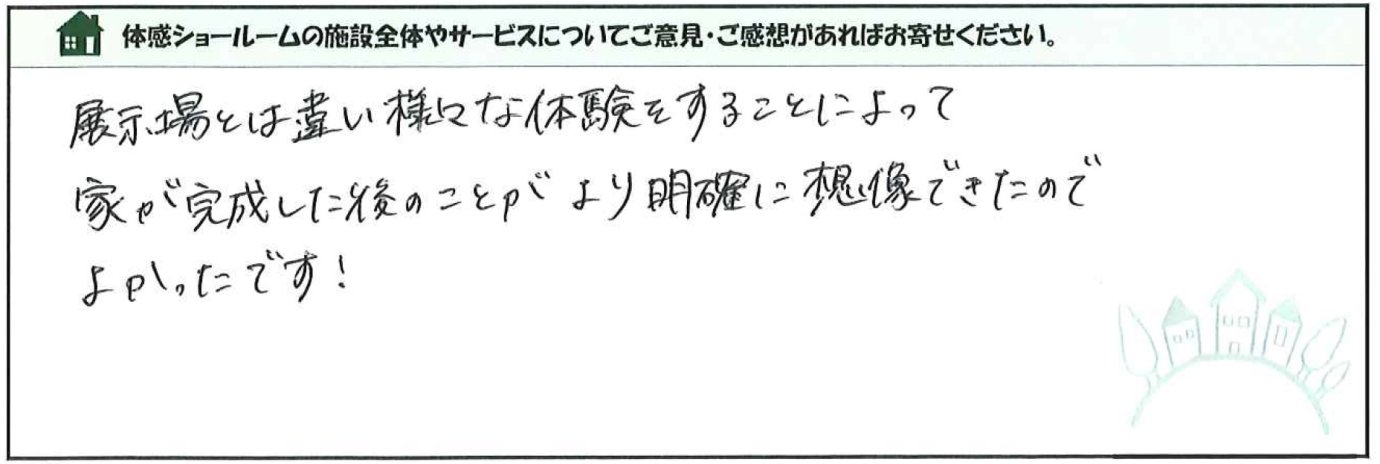 体感ショールームの施設全体やサービスについてご意見・ご感想があればお寄せください。
展示場とは違い様々な体験をすることによって
家が完成した後のことがより明確に想像できたので
よかったです!